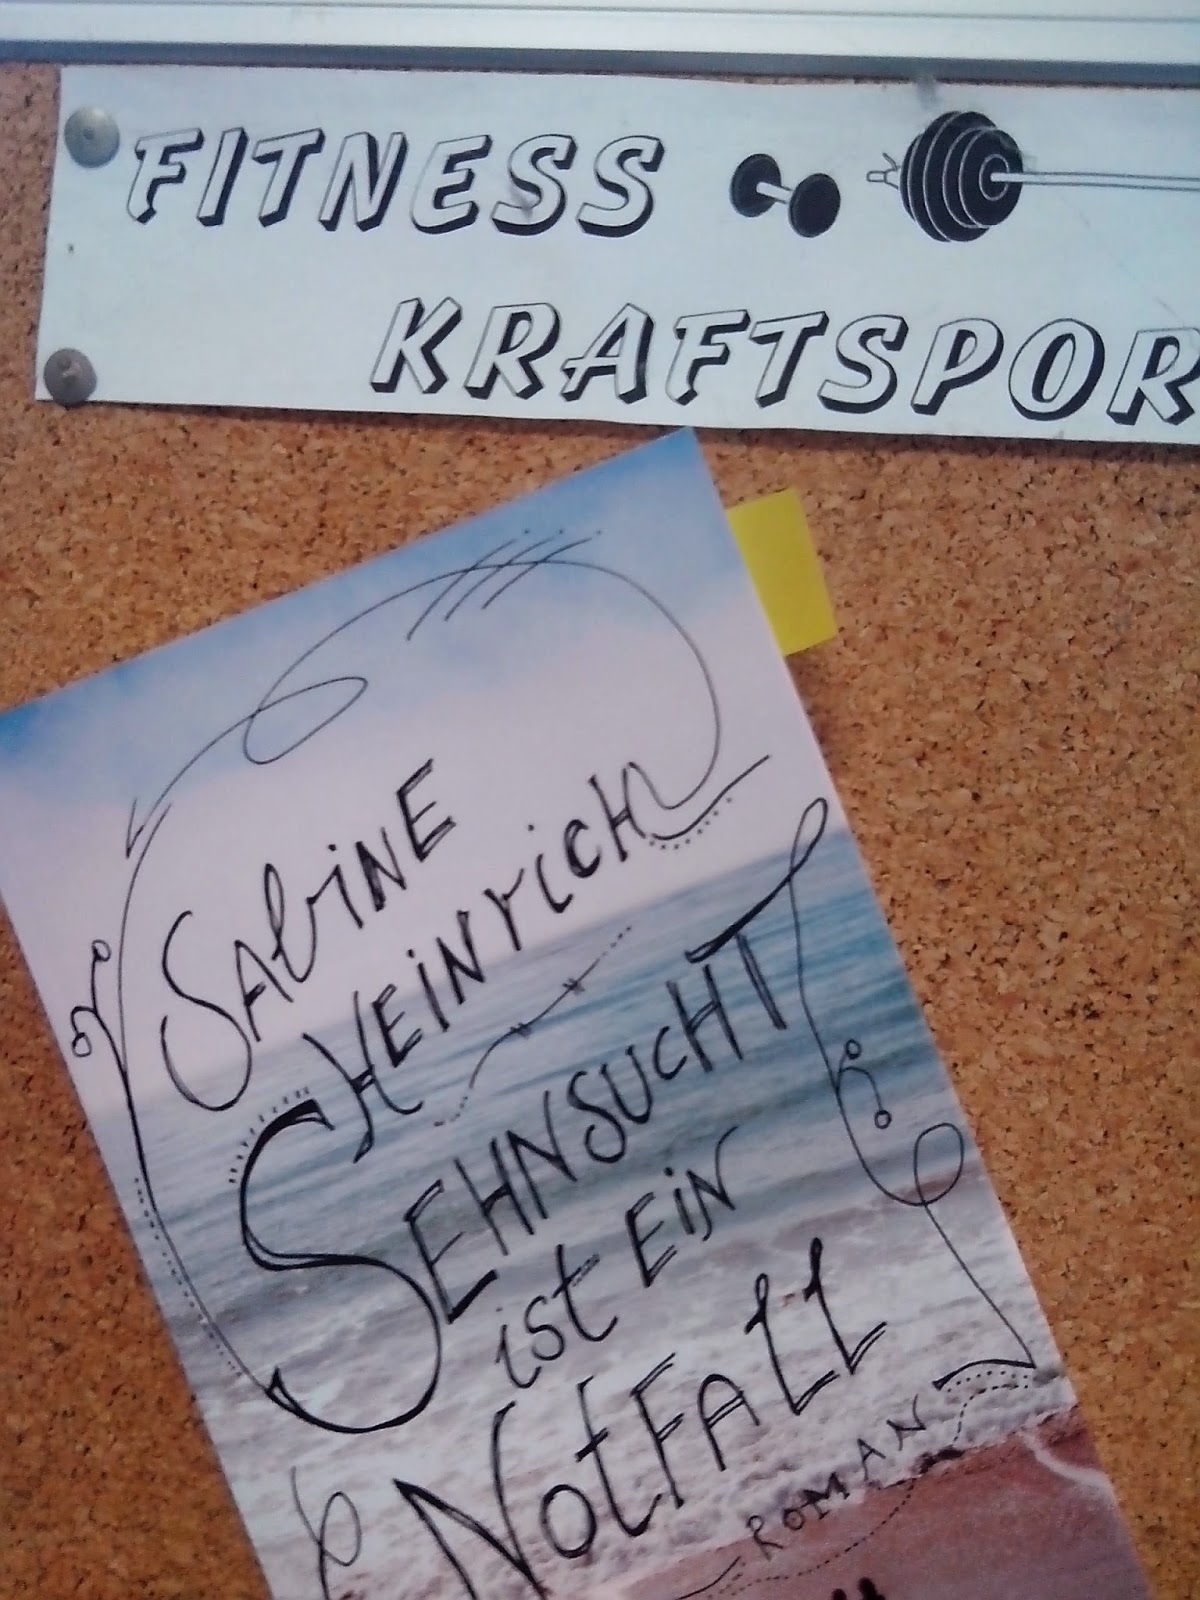 FITNESS
KRAFTSPOR
SAbiNE
HEiNricH
SEHNSUcHT
ist EiN
NotFAll
ROMAN